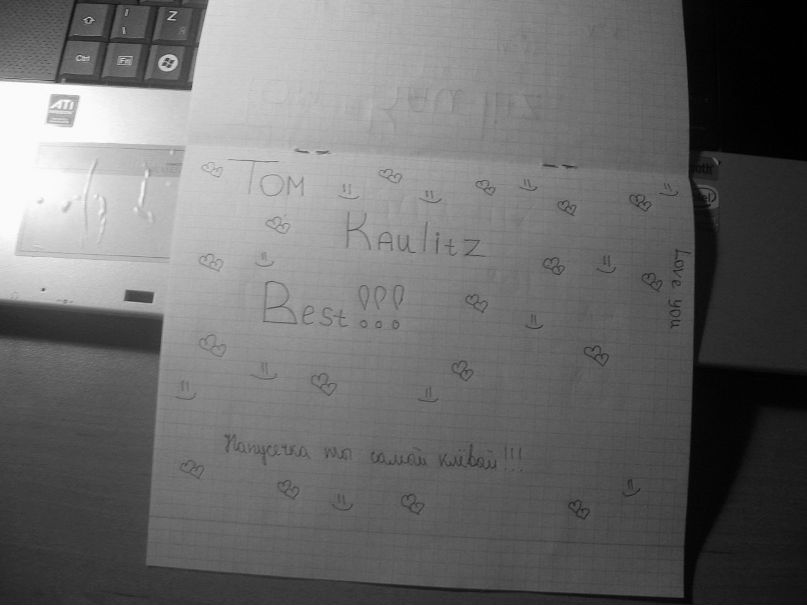 Z
Ctrl
Fn
ATI
TOM
KAulitz
Best!!!
Love you
ты самой клёвой!!!